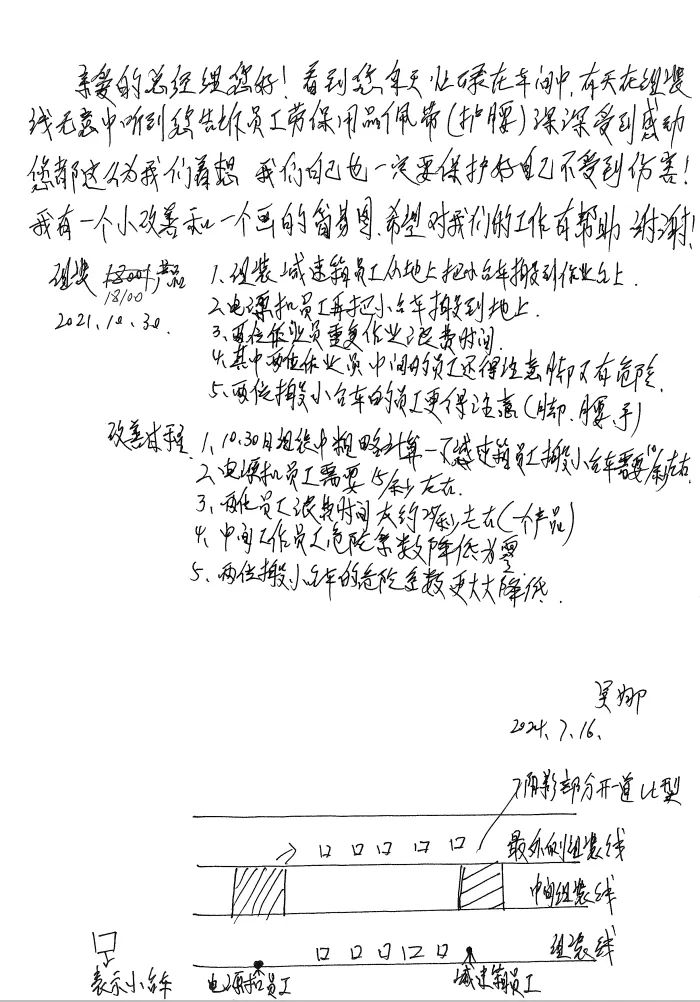 亲爱的总经理您好！看到您每天忙碌在车间中，有天在组装
线无意中听到您告诉员工劳保用品佩带（护腰）深深受到感动
您都这么为我们着想 我们自己也一定要保护好自己不受到伤害！
我有一个小改善和一个画的简易图.希望对我们的工作有帮助 谢谢！
组装 18001产品 1、组装减速箱员工从地上把小台车搬到作业台上.
18100
2021.10.30. 2、电源机员工再把小台车搬到地上.
3、两位作业员重复作业浪费时间.
4、其中两位作业员中间的员工还得注意脚又有危险.
5、两位搬小台车的员工更得注意（脚、腰、手）
改善过程 1、10.30日组线中粗略计算一下减速箱员工搬小台车需要10/秒左右
2、电源机员工需要15/秒左右.
3、两位员工浪费时间大约25秒左右（一个产品）
4、中间工作员工危险系数降低为零
5、两位搬小台车的危险系数更大大降低.
吴娜
2024.7.16.
阴影部分开一道U型
最外侧组装线
中间组装线
组装线
表示小台车 电源机员工 减速箱员工